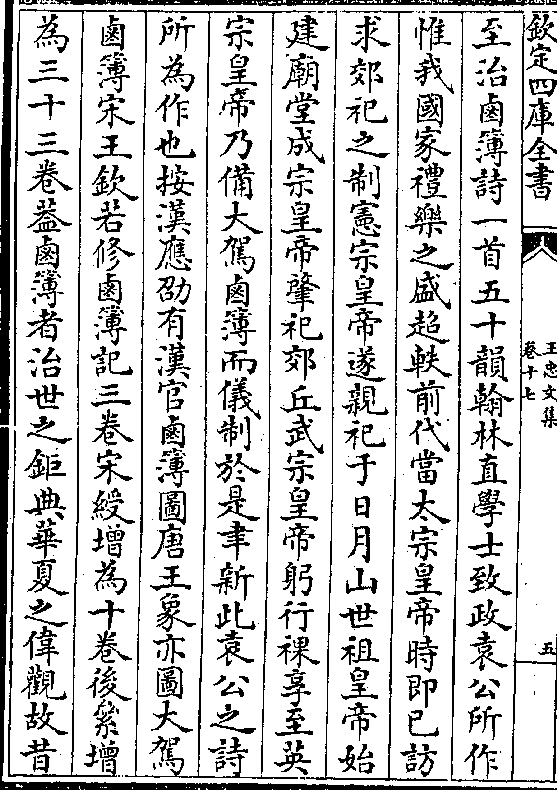 欽定四庫全書
王忠文集
卷十七
五
至治鹵簿詩一首五十韻翰林直學士致政袁公所作
惟我國家禮樂之盛超軼前代當太宗皇帝時即已訪
求郊祀之制憲宗皇帝遂親祀于日月山世祖皇帝始
建廟堂成宗皇帝肇祀郊丘武宗皇帝躬行祼享至英
宗皇帝乃備大駕鹵簿而儀制於是聿新此袁公之詩
所為作也按漢應劭有漢官鹵簿圖唐王象亦圖大駕
鹵簿宋王欽若修鹵簿記三卷宋綬增為十卷後絫增
為三十三卷葢鹵簿者治世之鉅典華夏之偉觀故昔